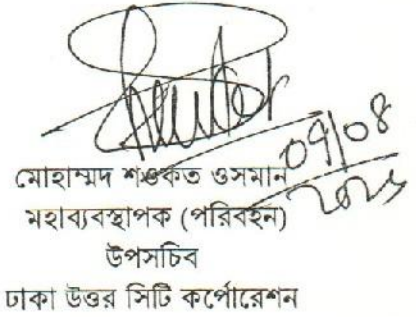 ০৭/০৮
মোহাম্মদ শওকত ওসমান
মহাব্যবস্থাপক (পরিবহন)
উপসচিব
ঢাকা উত্তর সিটি কর্পোরেশন